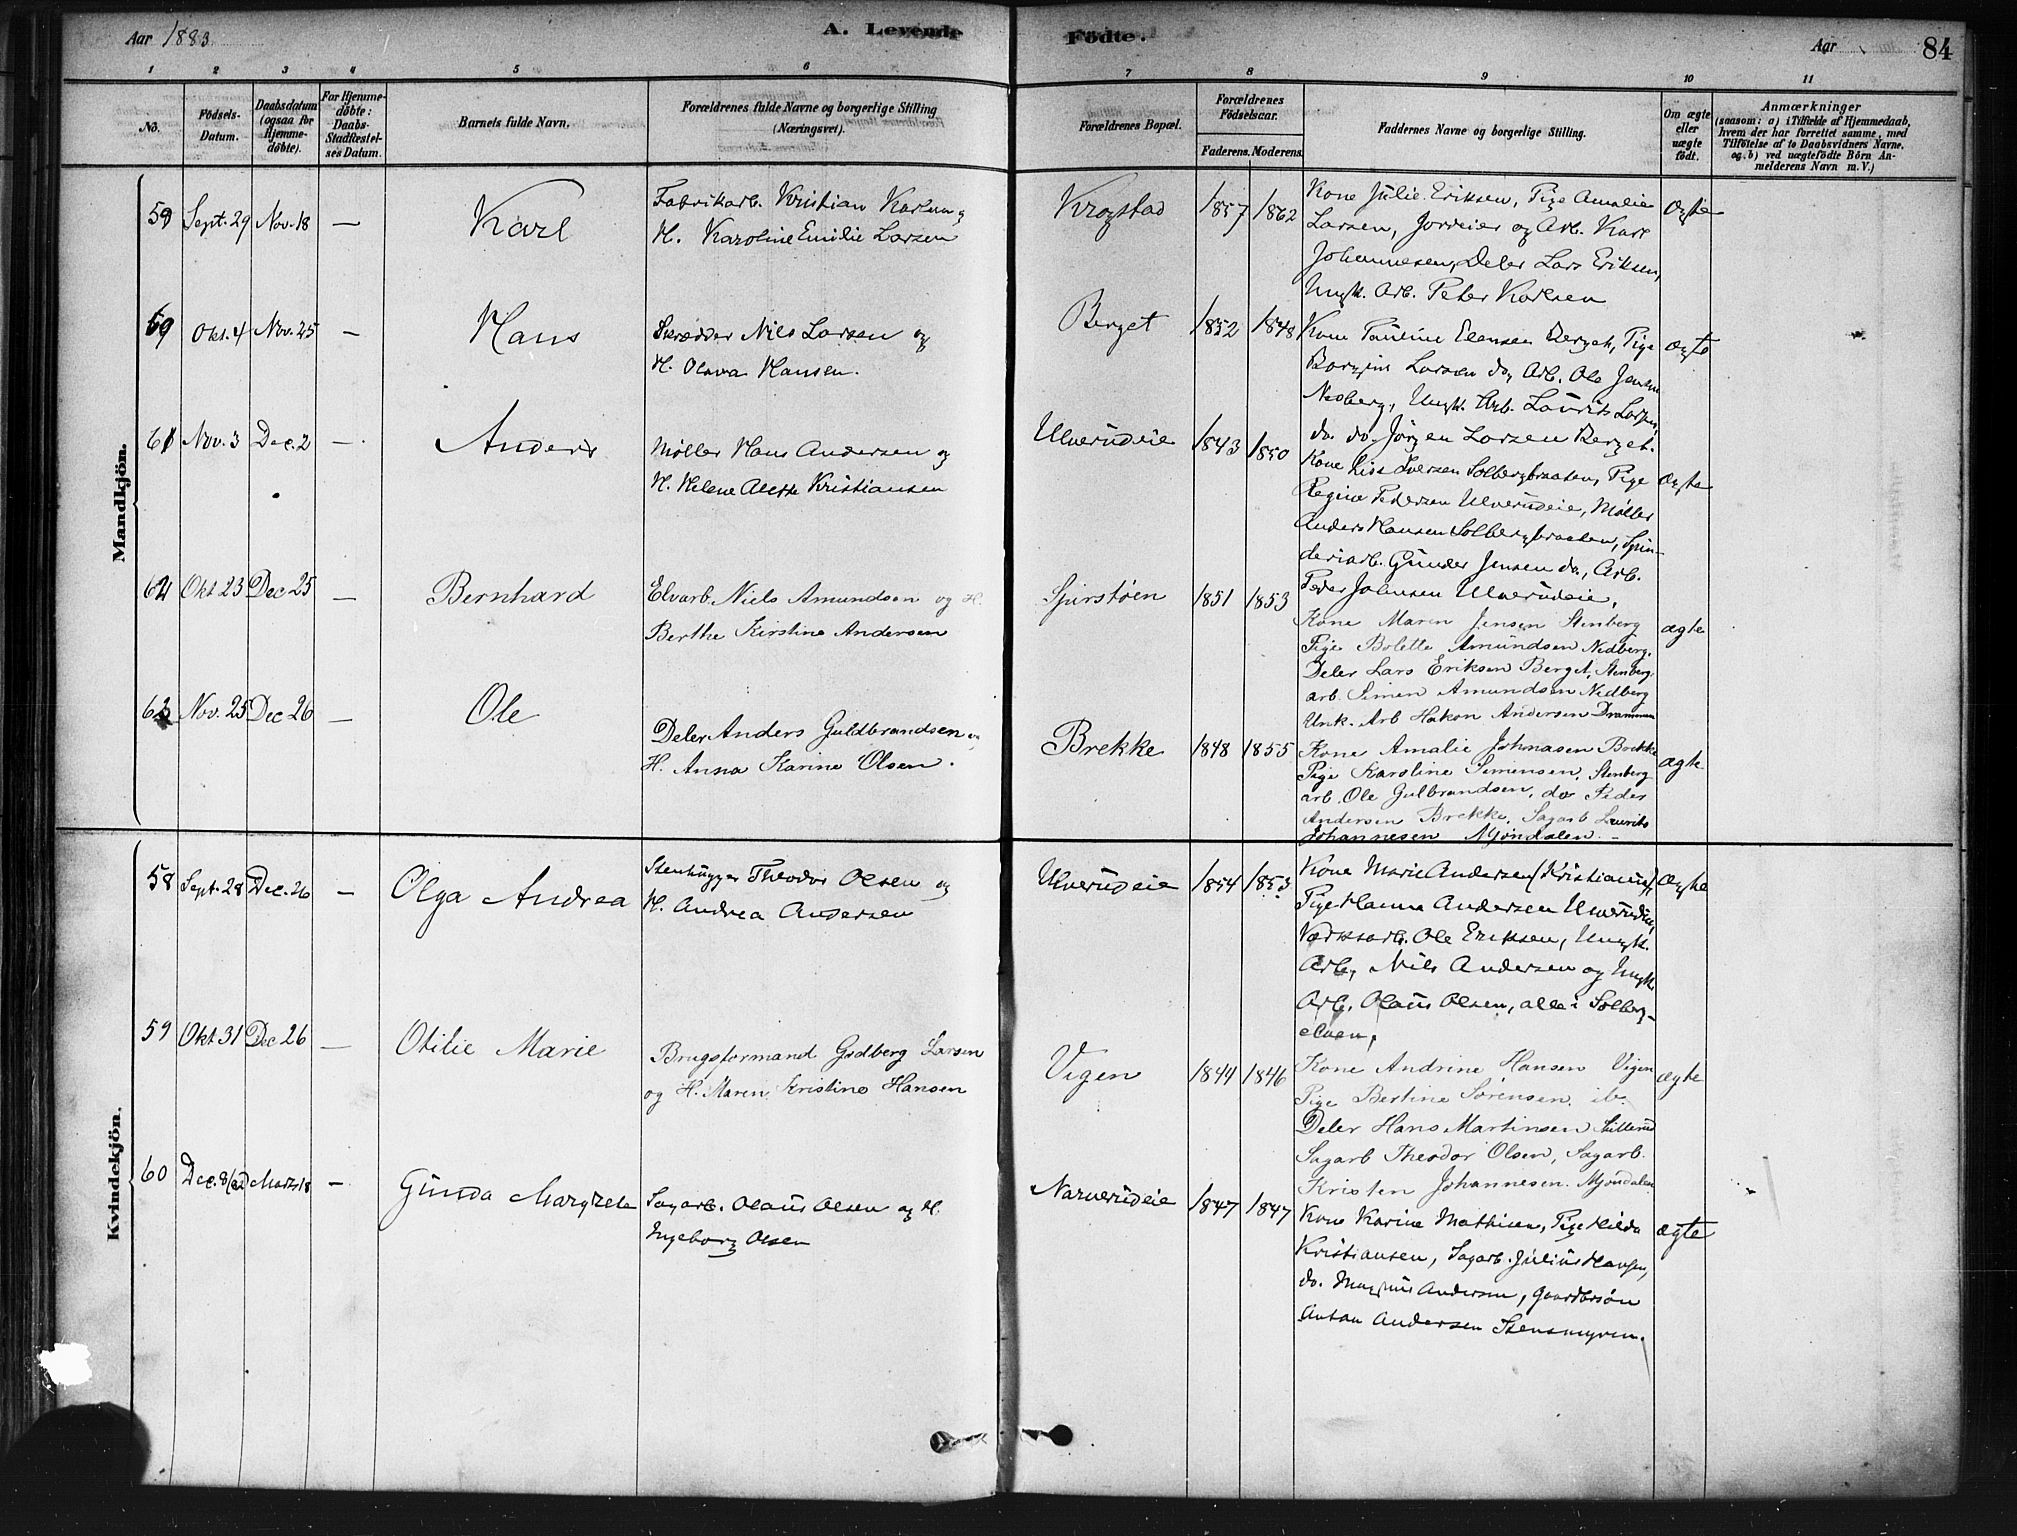 Aar 1883.
A. Levende Fødte.
Aar
84
1 2 3 4 5 6 7 8 9 10 11
No.
Fødsels-Datum.
Daabsdatum (ogsaa for Hjemmedøbte).
For Hjemmedøbte: Daabs-Stadfæstelses Datum.
Barnets fulde Navn.
Forældrenes fulde Navne og borgerlige Stilling (Næringsvei).
Forældrenes Bopæl.
Forældrenes Fødselsaar.
Faderens. Moderens.
Faddernes Navne og borgerlige Stilling.
Om ægte eller uægte født.
Anmærkninger (saasom: a) i Tilfælde af Hjemmedaab, hvem der har forrettet samme, med Tilføielse af to Daabsvidners Navne, og b) ved uægtefødte Børn Anmelderens Navn m. V.)
Mandkjön.
59 Sept. 29 Nov. 18 — Karl
Fabrikarb. Kristian Karlsen og
H. Karoline Emilie Larsen
Krogstad 1857 1862
Kone Julie Eriksen, Pige Amalie
Larsen, Jordeier og Arb. Karl
Johannesen, Deler Lars Eriksen,
Ungk. Arb. Peter Karlsen
ægte
Okt. 4 Nov. 25 — Hans
Skrædder Nils Larsen og
H. Olava Hansen.
Berget 1852 1848
Kone Pauline Ellensen Berget, Pige
Larsen do, Arb. Ole Jensen
Nesberg, Ungk. Arb. Laurits Larsen,
do. do. Jörgen Larsen Berget.
ægte
61 Nov. 3 Dec. 2 — Anders
Møller Hans Andersen og
H. Helene Alette Kristiansen
Ulverudeie 1843 1850
Kone Lise Iversen Solbergbraaten, Pige
Regine Pedersen Ulverudeie, Møller
Anders Hansen Solbergbraaten, Spin-
deriarb. Gunder Jensen do., Arb.
Peder Johnsen Ulverudeie,
ægte
62 Okt 23 Dec 25 — Bernhard
Elvarb. Niels Amundsen og H.
Berthe Kirstine Andersen
Spirstöen 1851 1853
Kone Maren Jensen Stenberg
Pige Bolette Amundsen Nedberg.
Deler Lars Eriksen Berget, Stenberg
arb. Simen Amundsen Nedberg
Unk. Arb Hakon Andersen Drammen
ægte
63 Nov. 25 Dec 26 — Ole
Deler Anders Guldbrandsen og
H. Anna Karine Olsen.
Brekke 1848 1855
Kone Amalie Johnasen Brekke
Pige Karoline Simensen, Stenberg
arb. Ole Gulbrandsen, do Peder
Andersen Brekke, Sagarb Laurits
Johannesen Mjöndalen. —
ægte
Kvindekjön.
58 Sept. 28 Dec. 26 — Olga Andrea
Stenhugger Theodor Olsen og
H. Andrea Andersen
Ulverudeie 1854 1853
Kone Marie Andersen (Kristiania),
Pige Hanna Andersen Ulverudeie,
Værksarb. Ole Eriksen, Ungk.
Arb, Nils Andersen og Ungk.
Arb. Olaus Olsen, alle i Solberg-
elven,
ægte
59 Okt 31 Dec 26 — Otilie Marie
Brugsformand Gudberg Larsen
og H. Maren Kristine Hansen
Vigen 1844 1846
Kone Andrine Hansen Vigen
Pige Bertine Sörensen ib.
Deler Hans Martinsen
Sagarb Theodor Olsen, Sagarb.
Kristen Johannesen. Mjöndalen
ægte
60 Dec. 8 Marts 18 — Gunda Margrete
Sagarb. Olaus Olsen og H.
Ingeborg Olsen
Narverudeie 1847 1847
Kone Karine Mathisen, Pige Hilda
Kristiansen, Sagarb. Julius Hansen,
do. Magnus Andersen, Gaardbrsön
Anton Andersen Stensmyren.
ægte